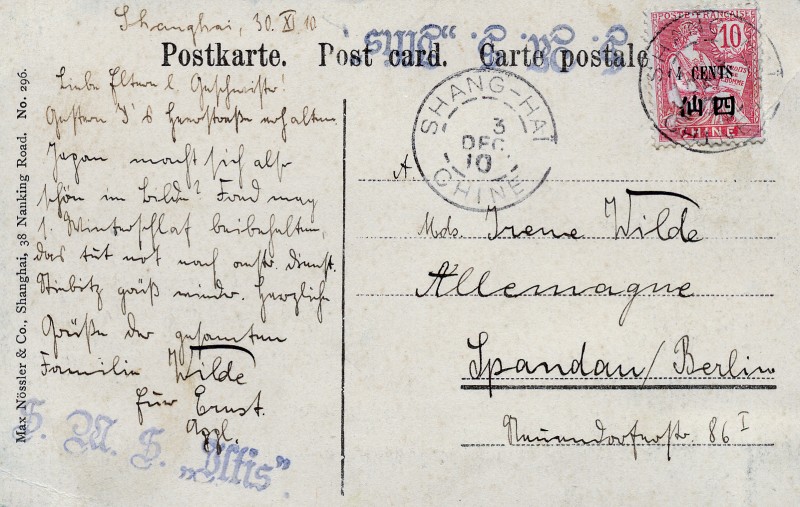 Shanghai, 30. XI 10
S. M. S. „Iltis".
Postkarte. Post card. Carte postale
Liebe Eltern & Geschwister!
Gestern I's Heerstraße erhalten
Japan macht sich als
schön im Bilde? Fond mag
s. Winterschlaf beibehalten,
das tut not nach Dienst.
grüß wieder. Herzliche
Grüße der gesamten
Familie Wilde
Euer Ernst.
S. M. S. „Iltis".
Max Nössler & Co., Shanghai, 38 Nanking Road. No. 296.
SHANG-HAI
3
DEC
10
CHINE
POSTE FRANÇAISE
10
4 CENTS
仙四
CHINE
A
Mds. Irene Wilde
Allemagne
Spandau/Berlin
Neuendorferstr. 86 I